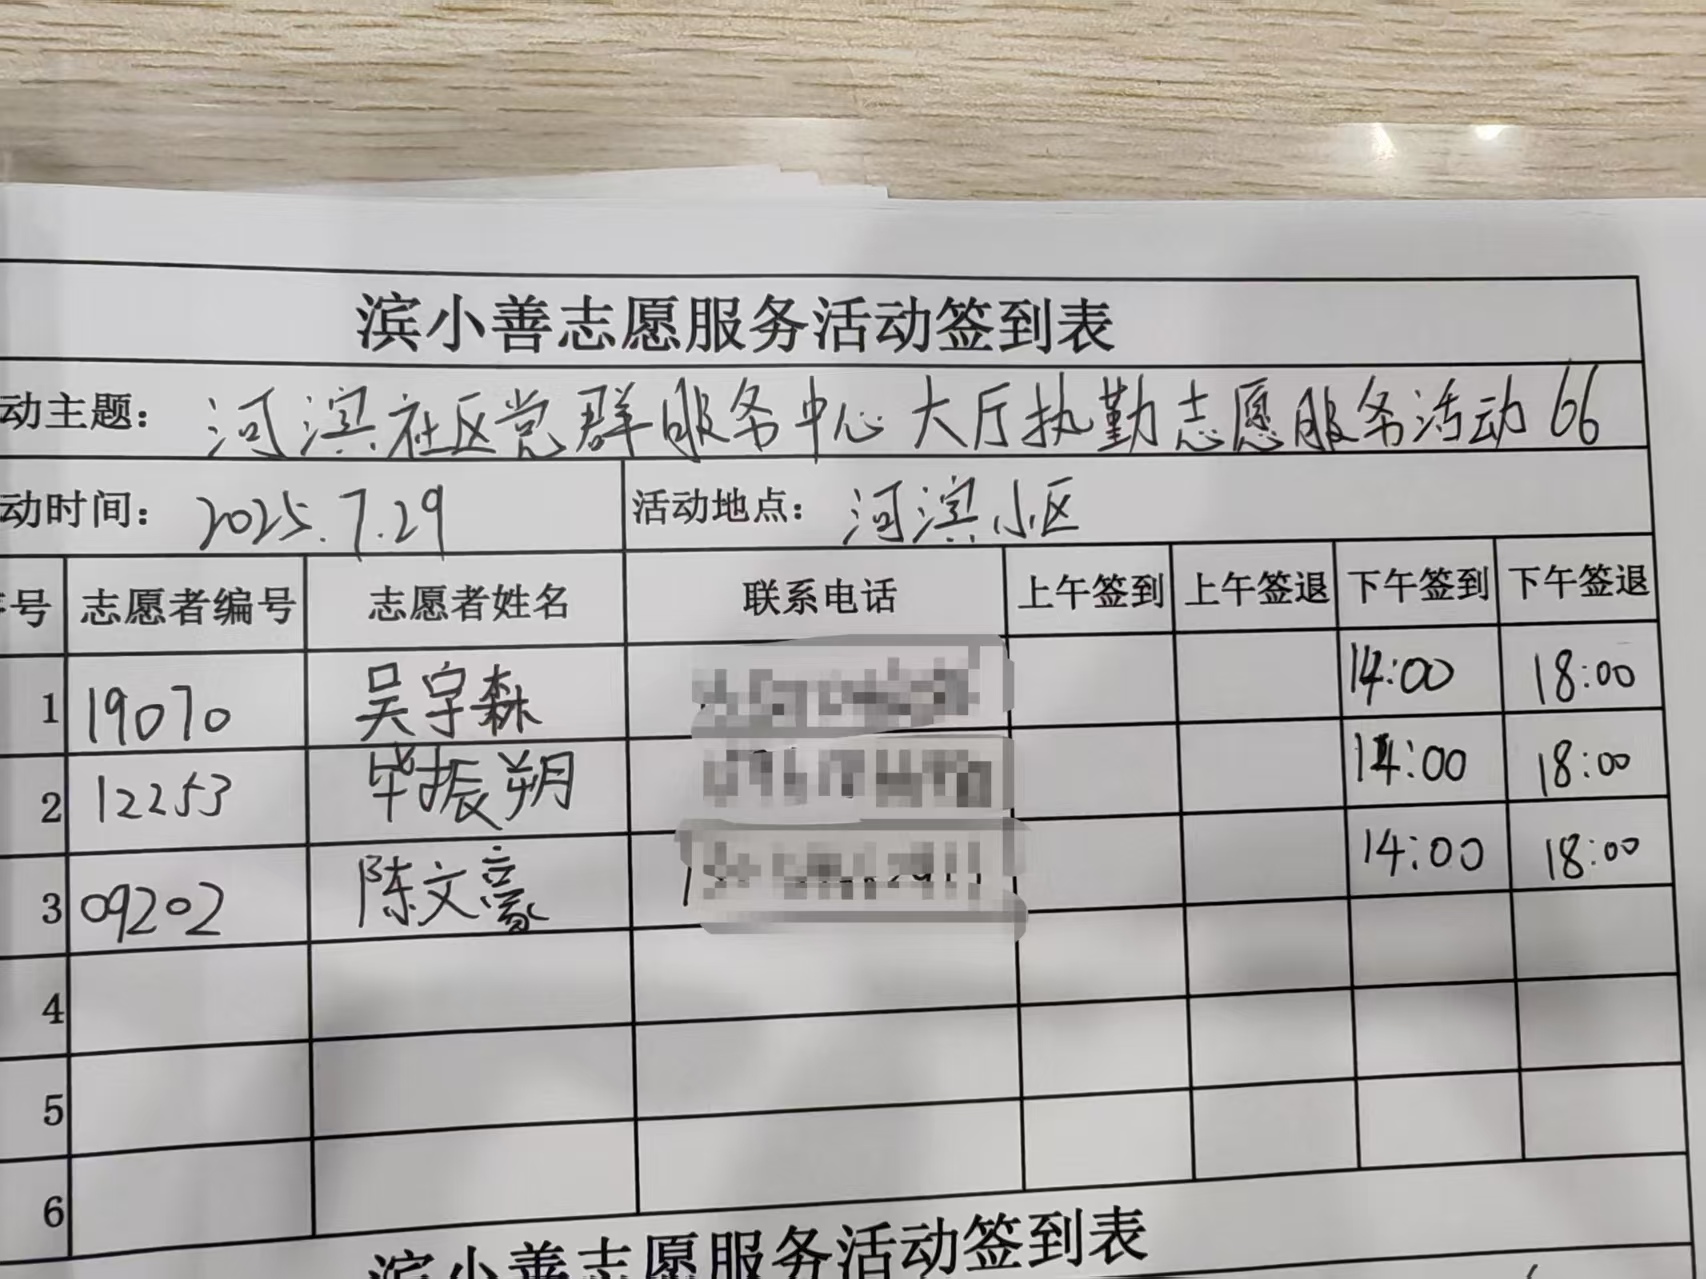 滨小善志愿服务活动签到表
动主题： 河滨社区党群服务中心大厅执勤志愿服务活动66
动时间： 2025.7.29 活动地点： 河滨小区
号 志愿者编号 志愿者姓名 联系电话 上午签到 上午签退 下午签到 下午签退
1 19070 吴宇森 14:00 18:00
2 12253 毕振朔 14:00 18:00
3 09202 陈文豪 14:00 18:00
4
5
6
滨小善志愿服务活动签到表